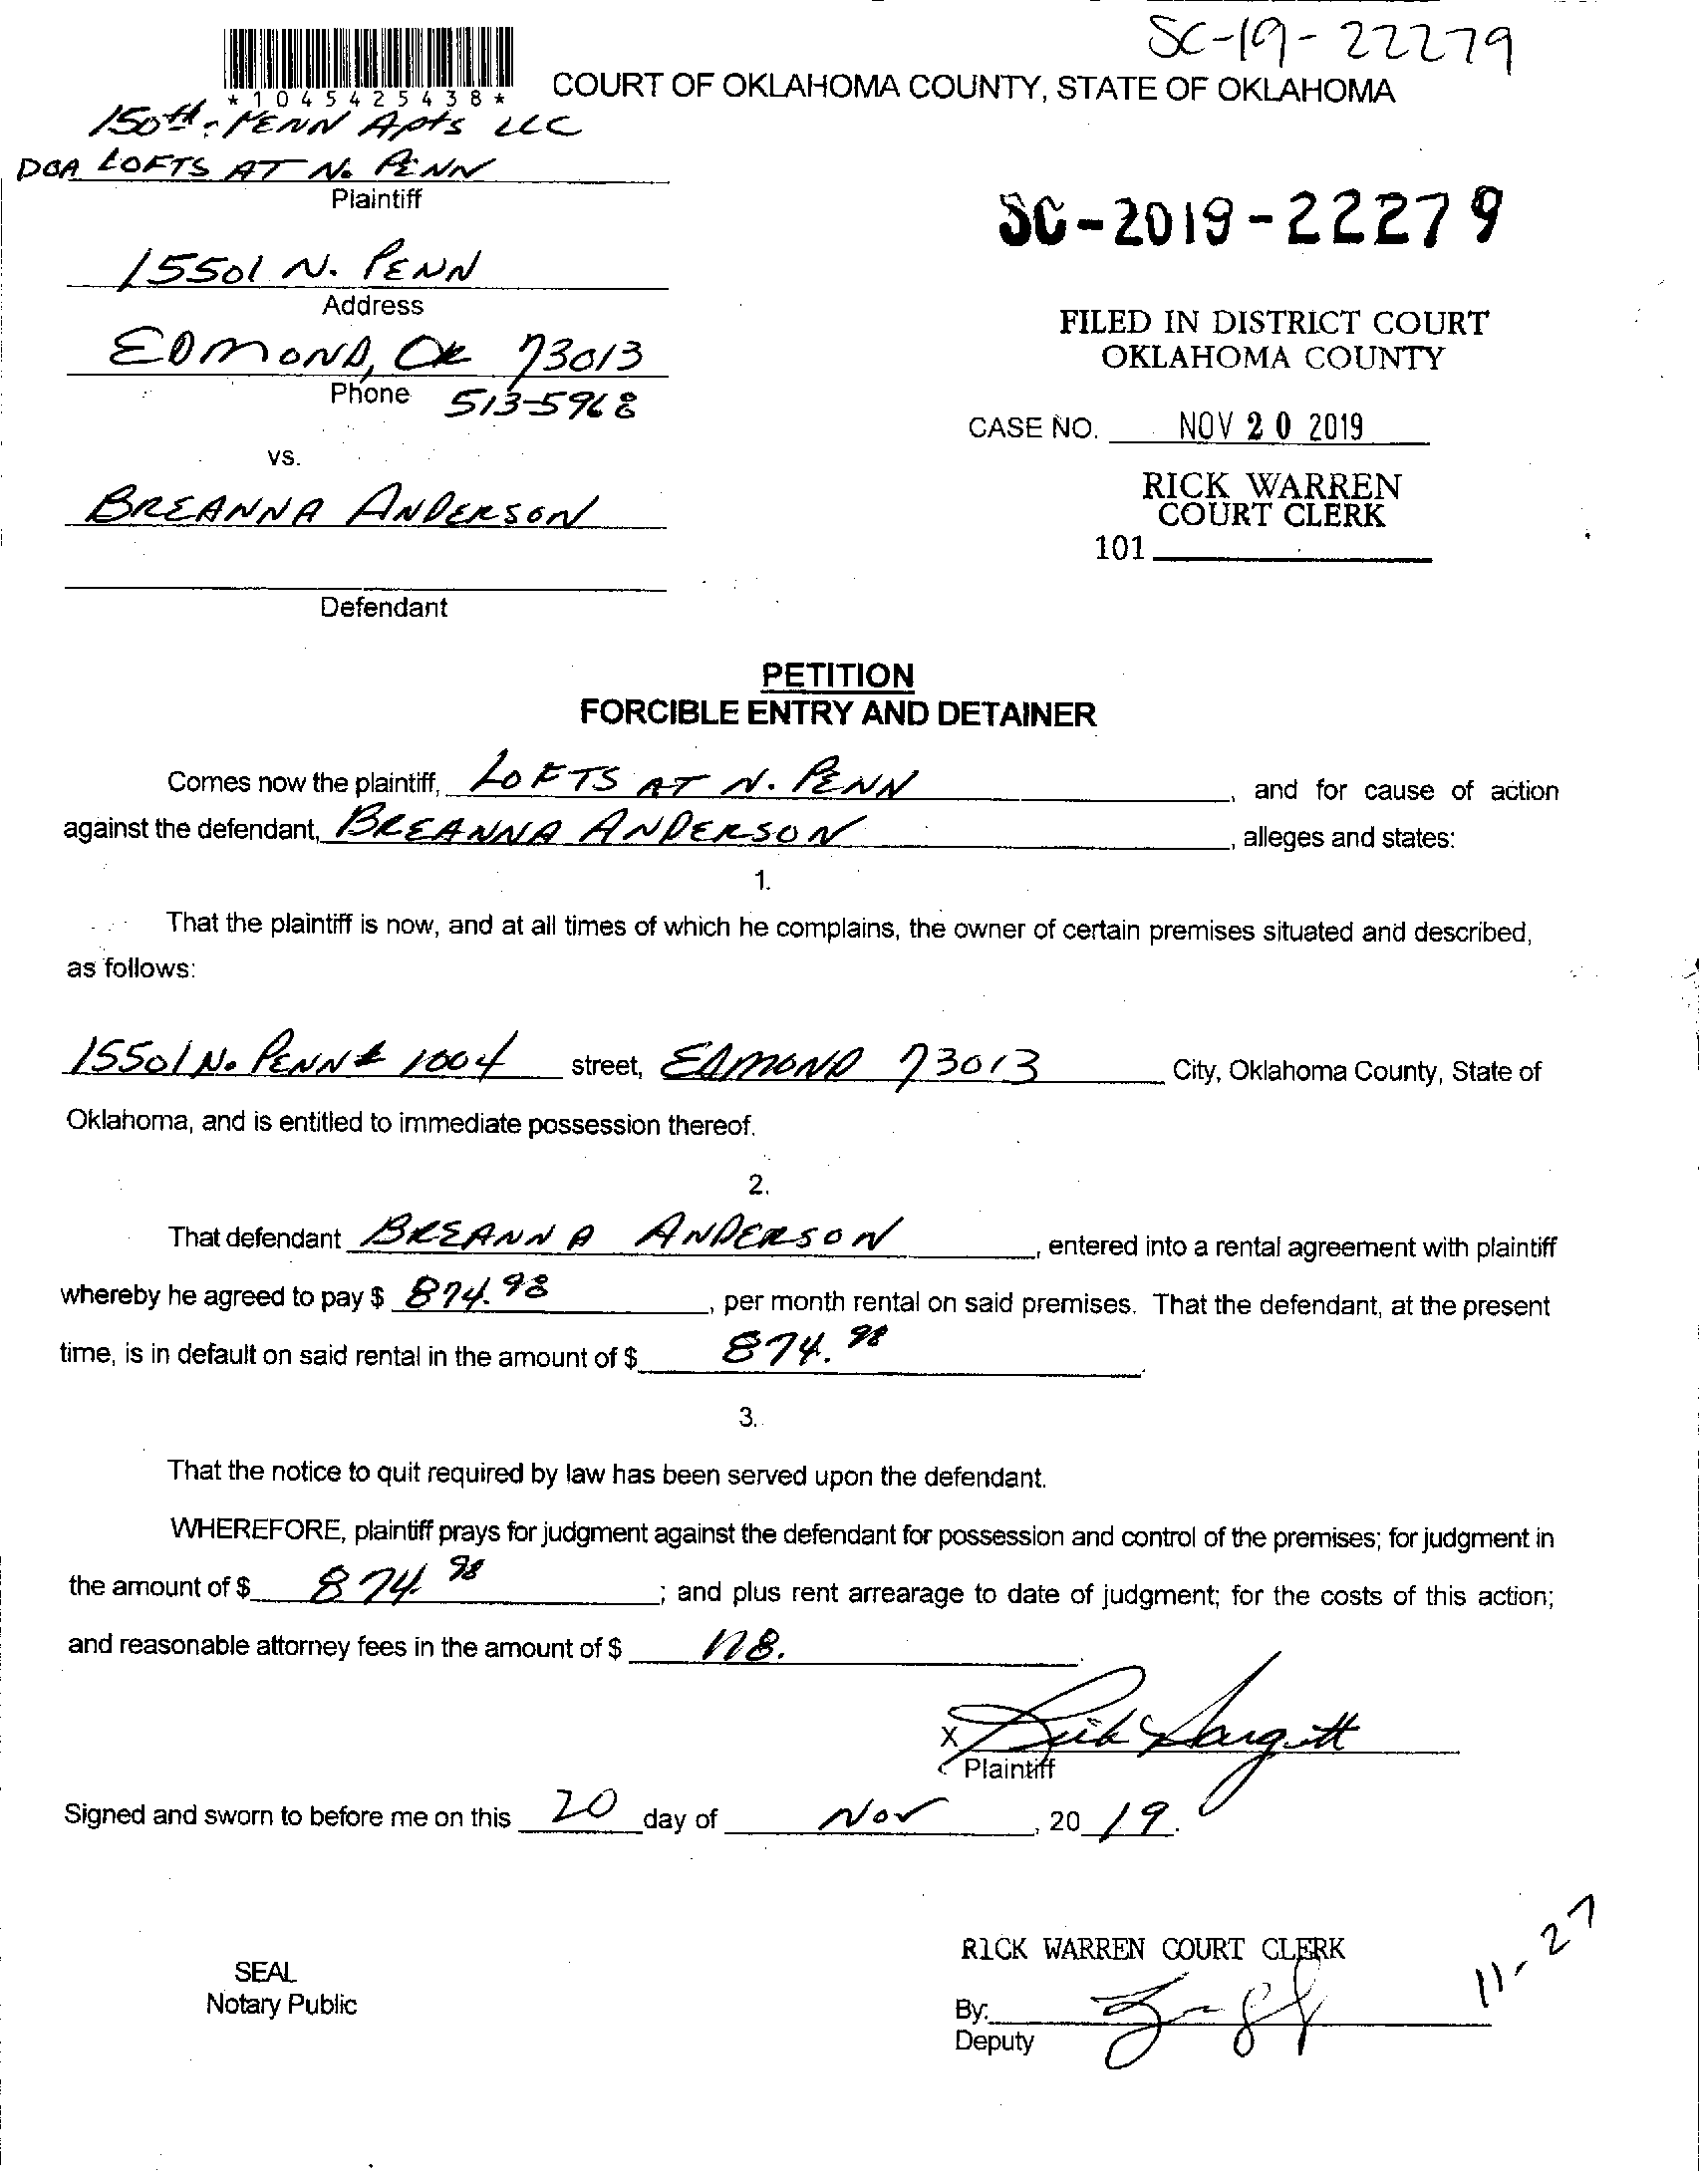 SC-19-22279
*1045425438*
COURT OF OKLAHOMA COUNTY, STATE OF OKLAHOMA
150th - PENN Apts LLC
DBA LOFTS AT N. PENN
Plaintiff
SC-2019-22279
15501 N. PENN
Address
FILED IN DISTRICT COURT
OKLAHOMA COUNTY
EDMOND, OK 73013
Phone 513-5968
CASE NO. NOV 20 2019
vs.
RICK WARREN
COURT CLERK
BREANNA ANDERSON
101
Defendant
PETITION
FORCIBLE ENTRY AND DETAINER
Comes now the plaintiff, LOFTS AT N. PENN, and for cause of action
against the defendant, BREANNA ANDERSON, alleges and states:
1.
That the plaintiff is now, and at all times of which he complains, the owner of certain premises situated and described,
as follows:
15501 N. PENN # 1004 street, EDMOND 73013 City, Oklahoma County, State of
Oklahoma, and is entitled to immediate possession thereof.
2.
That defendant BREANNA ANDERSON, entered into a rental agreement with plaintiff
whereby he agreed to pay $ 874.98, per month rental on said premises. That the defendant, at the present
time, is in default on said rental in the amount of $ 874.98.
3.
That the notice to quit required by law has been served upon the defendant.
WHEREFORE, plaintiff prays for judgment against the defendant for possession and control of the premises; for judgment in
the amount of $ 874.98; and plus rent arrearage to date of judgment; for the costs of this action;
and reasonable attorney fees in the amount of $
X
Plaintiff
Signed and sworn to before me on this 20 day of Nov, 20 19.
11-27
RICK WARREN COURT CLERK
SEAL
Notary Public
By:
Deputy